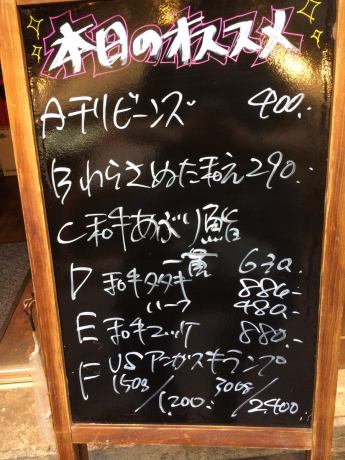 本日のオススメ
Aチリビーンズ 400.-
Bわらさぬた和え290.-
C和牛あぶり鮨
一貫 630.-
D 和牛タタキ 880.-
ハーフ 480.-
E 和牛ユッケ 880.-
F USアンガスキランプ
150g 300g
/1.200.- /2400.-